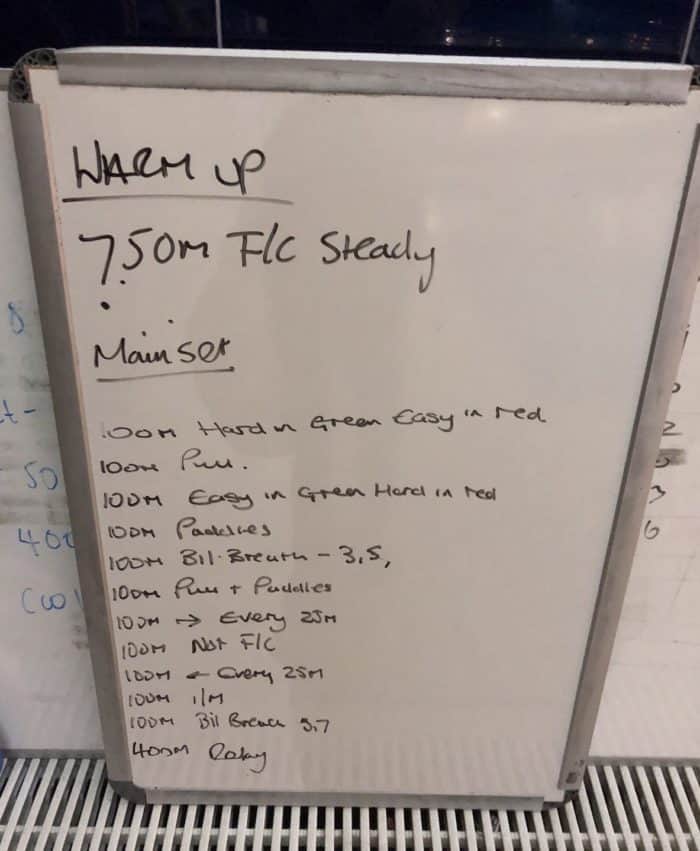 WARM UP
750m F/C Steady
Main set
100m Hard in Green Easy in red
100m Pull.
100m Easy in Green Hard in red
100m Paddles
100m Bil. Breath - 3,5,
100m Pull + Paddles
100m → Every 25m
100m Not F/C
100m ← Every 25m
100m I/M
100m Bil Breath 5,7
400m Relay
8
t-
50
400
Cool
2
5
3
6